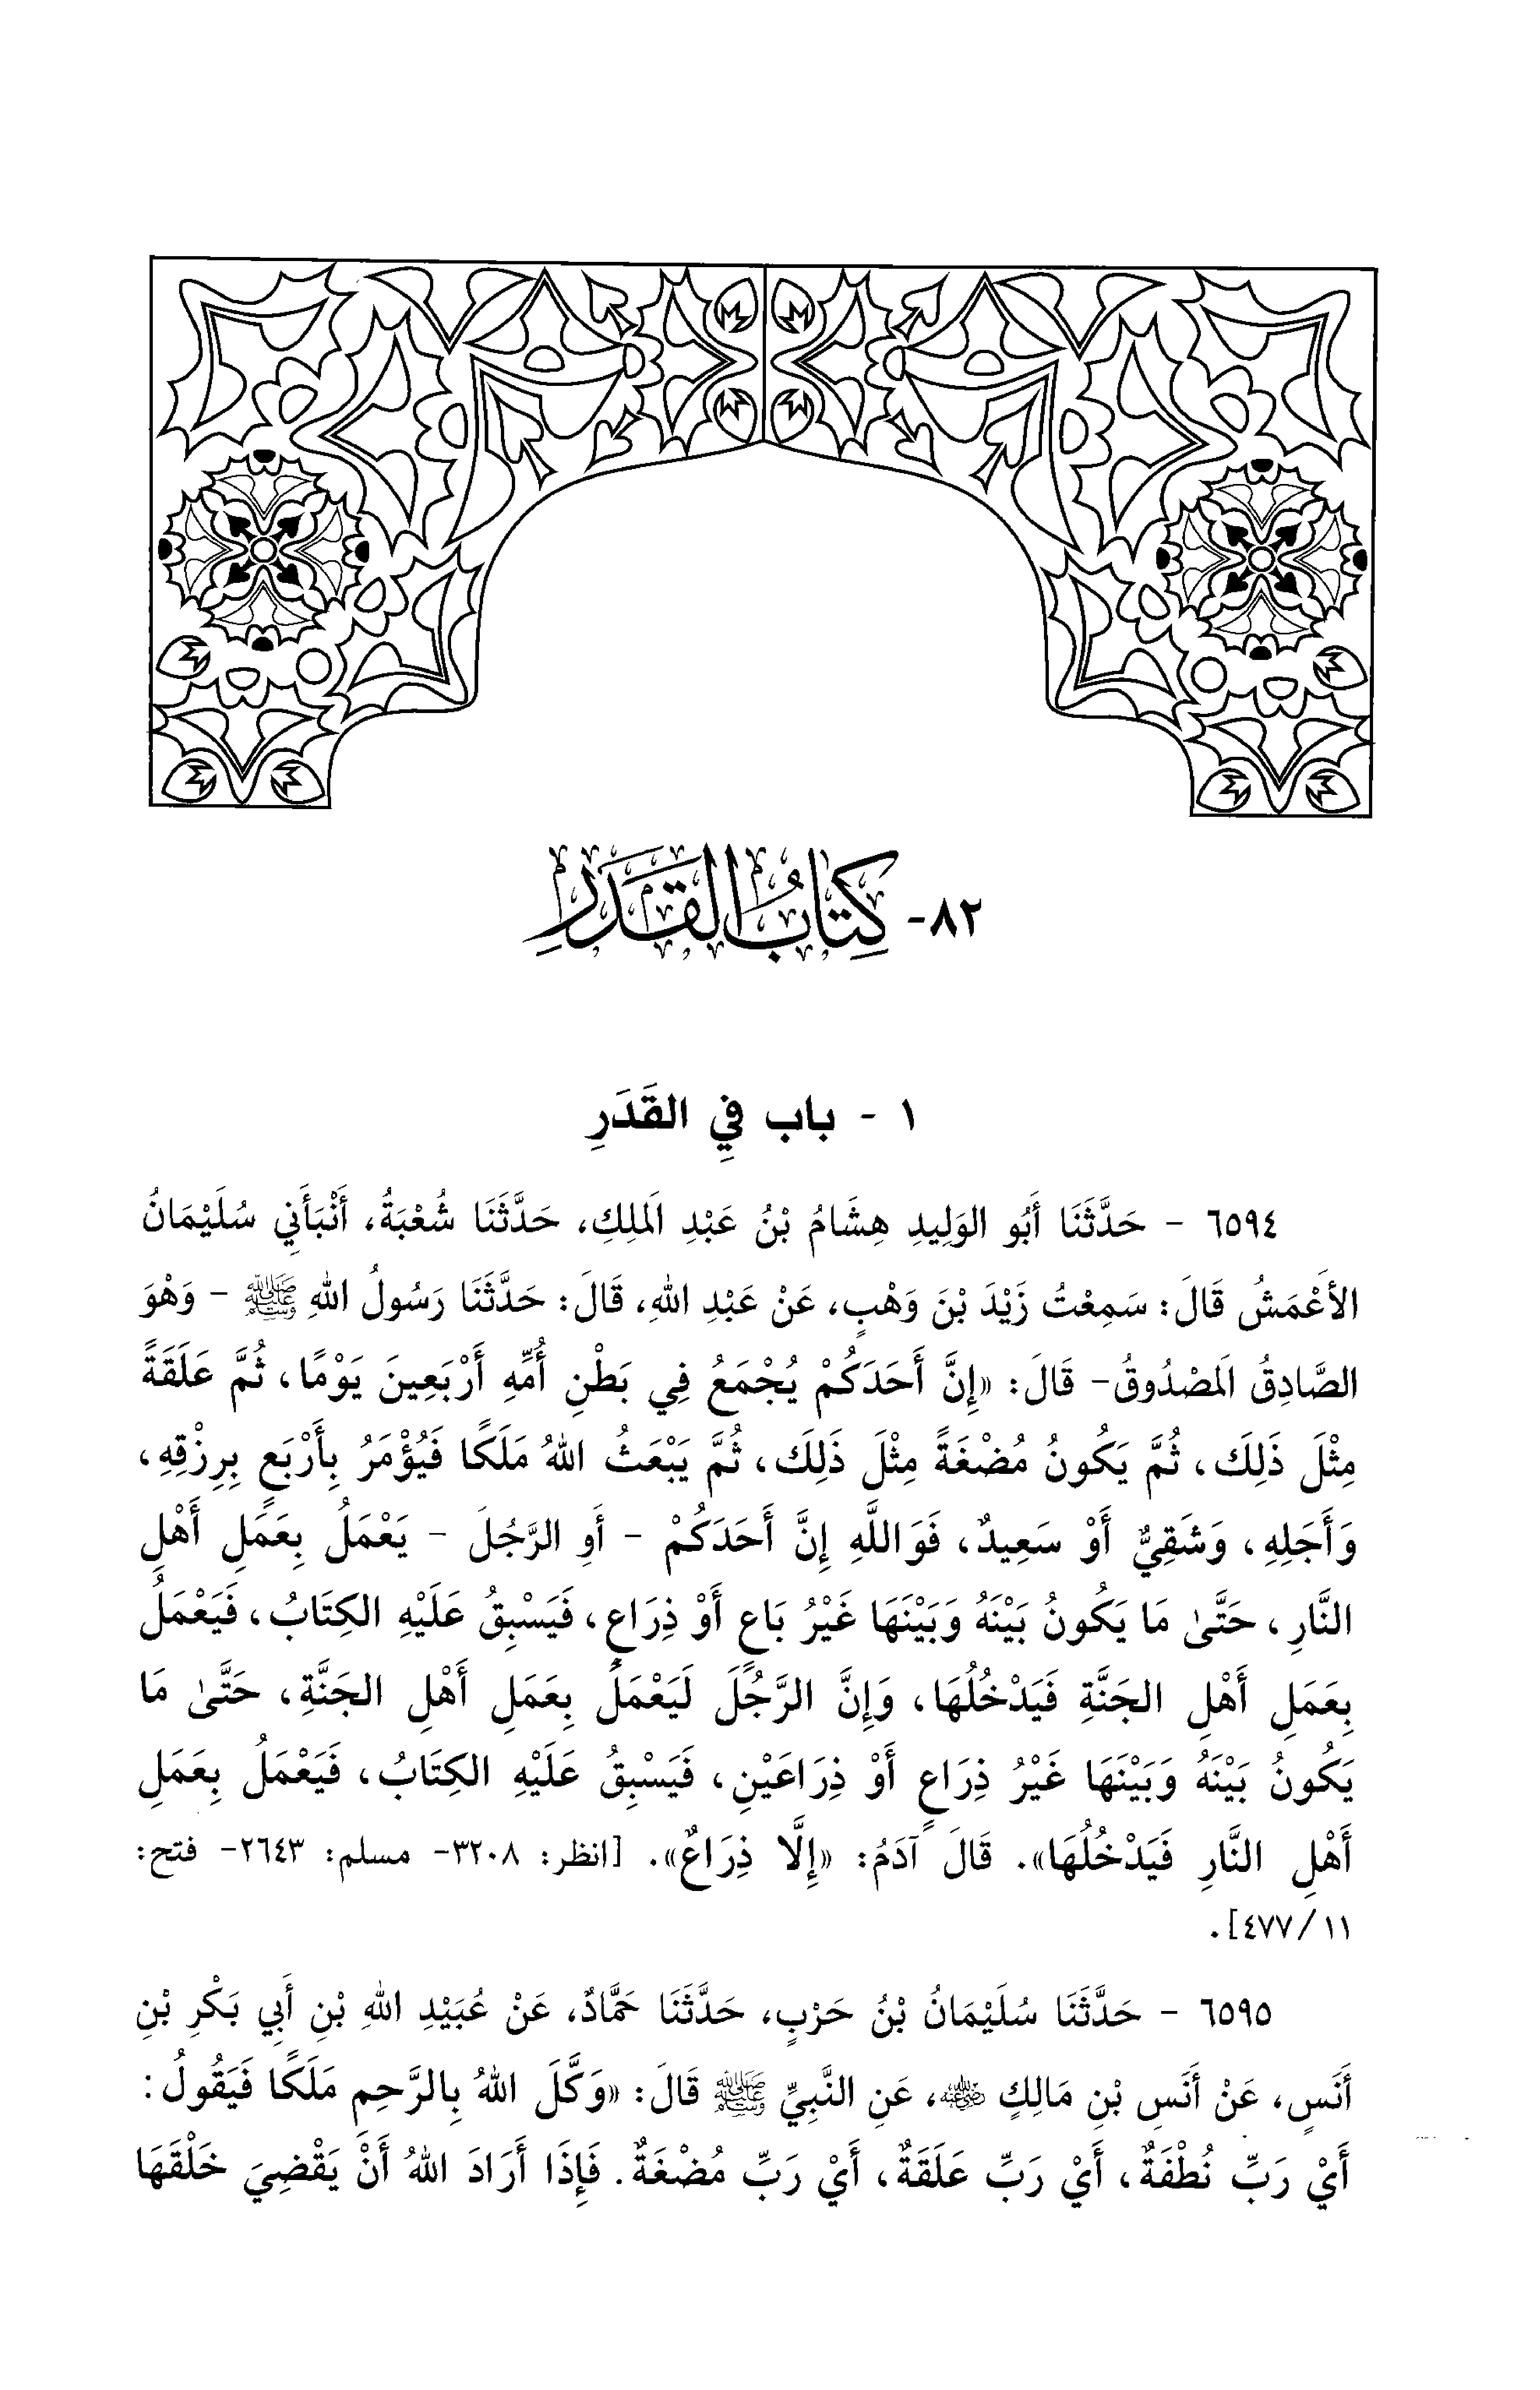 ٨٢- كِتَابُ القَدَرِ
١ - باب فِي القَدَرِ
٦٥٩٤ - حَدَّثَنَا أَبُو الوَلِيدِ هِشَامُ بْنُ عَبْدِ المَلِكِ، حَدَّثَنَا شُعْبَةُ، أَنْبَأَنِي سُلَيْمَانُ
الأَعْمَشُ قَالَ: سَمِعْتُ زَيْدَ بْنَ وَهْبٍ، عَنْ عَبْدِ اللهِ، قَالَ: حَدَّثَنَا رَسُولُ اللهِ ﷺ - وَهْوَ
الصَّادِقُ المَصْدُوقُ- قَالَ: «إِنَّ أَحَدَكُمْ يُجْمَعُ فِي بَطْنِ أُمِّهِ أَرْبَعِينَ يَوْمًا، ثُمَّ عَلَقَةً
مِثْلَ ذَلِكَ، ثُمَّ يَكُونُ مُضْغَةً مِثْلَ ذَلِكَ، ثُمَّ يَبْعَثُ اللهُ مَلَكًا فَيُؤْمَرُ بِأَرْبَعٍ بِرِزْقِهِ،
وَأَجَلِهِ، وَشَقِيٌّ أَوْ سَعِيدٌ، فَوَاللَّهِ إِنَّ أَحَدَكُمْ - أَوِ الرَّجُلَ - يَعْمَلُ بِعَمَلِ أَهْلِ
النَّارِ، حَتَّىٰ مَا يَكُونُ بَيْنَهُ وَبَيْنَهَا غَيْرُ بَاعٍ أَوْ ذِرَاعٍ، فَيَسْبِقُ عَلَيْهِ الكِتَابُ، فَيَعْمَلُ
بِعَمَلِ أَهْلِ الجَنَّةِ فَيَدْخُلُهَا، وَإِنَّ الرَّجُلَ لَيَعْمَلُ بِعَمَلِ أَهْلِ الجَنَّةِ، حَتَّىٰ مَا
يَكُونُ بَيْنَهُ وَبَيْنَهَا غَيْرُ ذِرَاعٍ أَوْ ذِرَاعَيْنِ، فَيَسْبِقُ عَلَيْهِ الكِتَابُ، فَيَعْمَلُ بِعَمَلِ
أَهْلِ النَّارِ فَيَدْخُلُهَا». قَالَ آدَمُ: «إِلَّا ذِرَاعٌ». [انظر: ٣٢٠٨- مسلم: ٢٦٤٣- فتح:
١١/٤٧٧].
٦٥٩٥ - حَدَّثَنَا سُلَيْمَانُ بْنُ حَرْبٍ، حَدَّثَنَا حَمَّادٌ، عَنْ عُبَيْدِ اللهِ بْنِ أَبِي بَكْرِ بْنِ
أَنَسٍ، عَنْ أَنَسِ بْنِ مَالِكٍ رضي الله عنه، عَنِ النَّبِيِّ ﷺ قَالَ: «وَكَّلَ اللهُ بِالرَّحِمِ مَلَكًا فَيَقُولُ:
أَيْ رَبِّ نُطْفَةٌ، أَيْ رَبِّ عَلَقَةٌ، أَيْ رَبِّ مُضْغَةٌ. فَإِذَا أَرَادَ اللهُ أَنْ يَقْضِيَ خَلْقَهَا